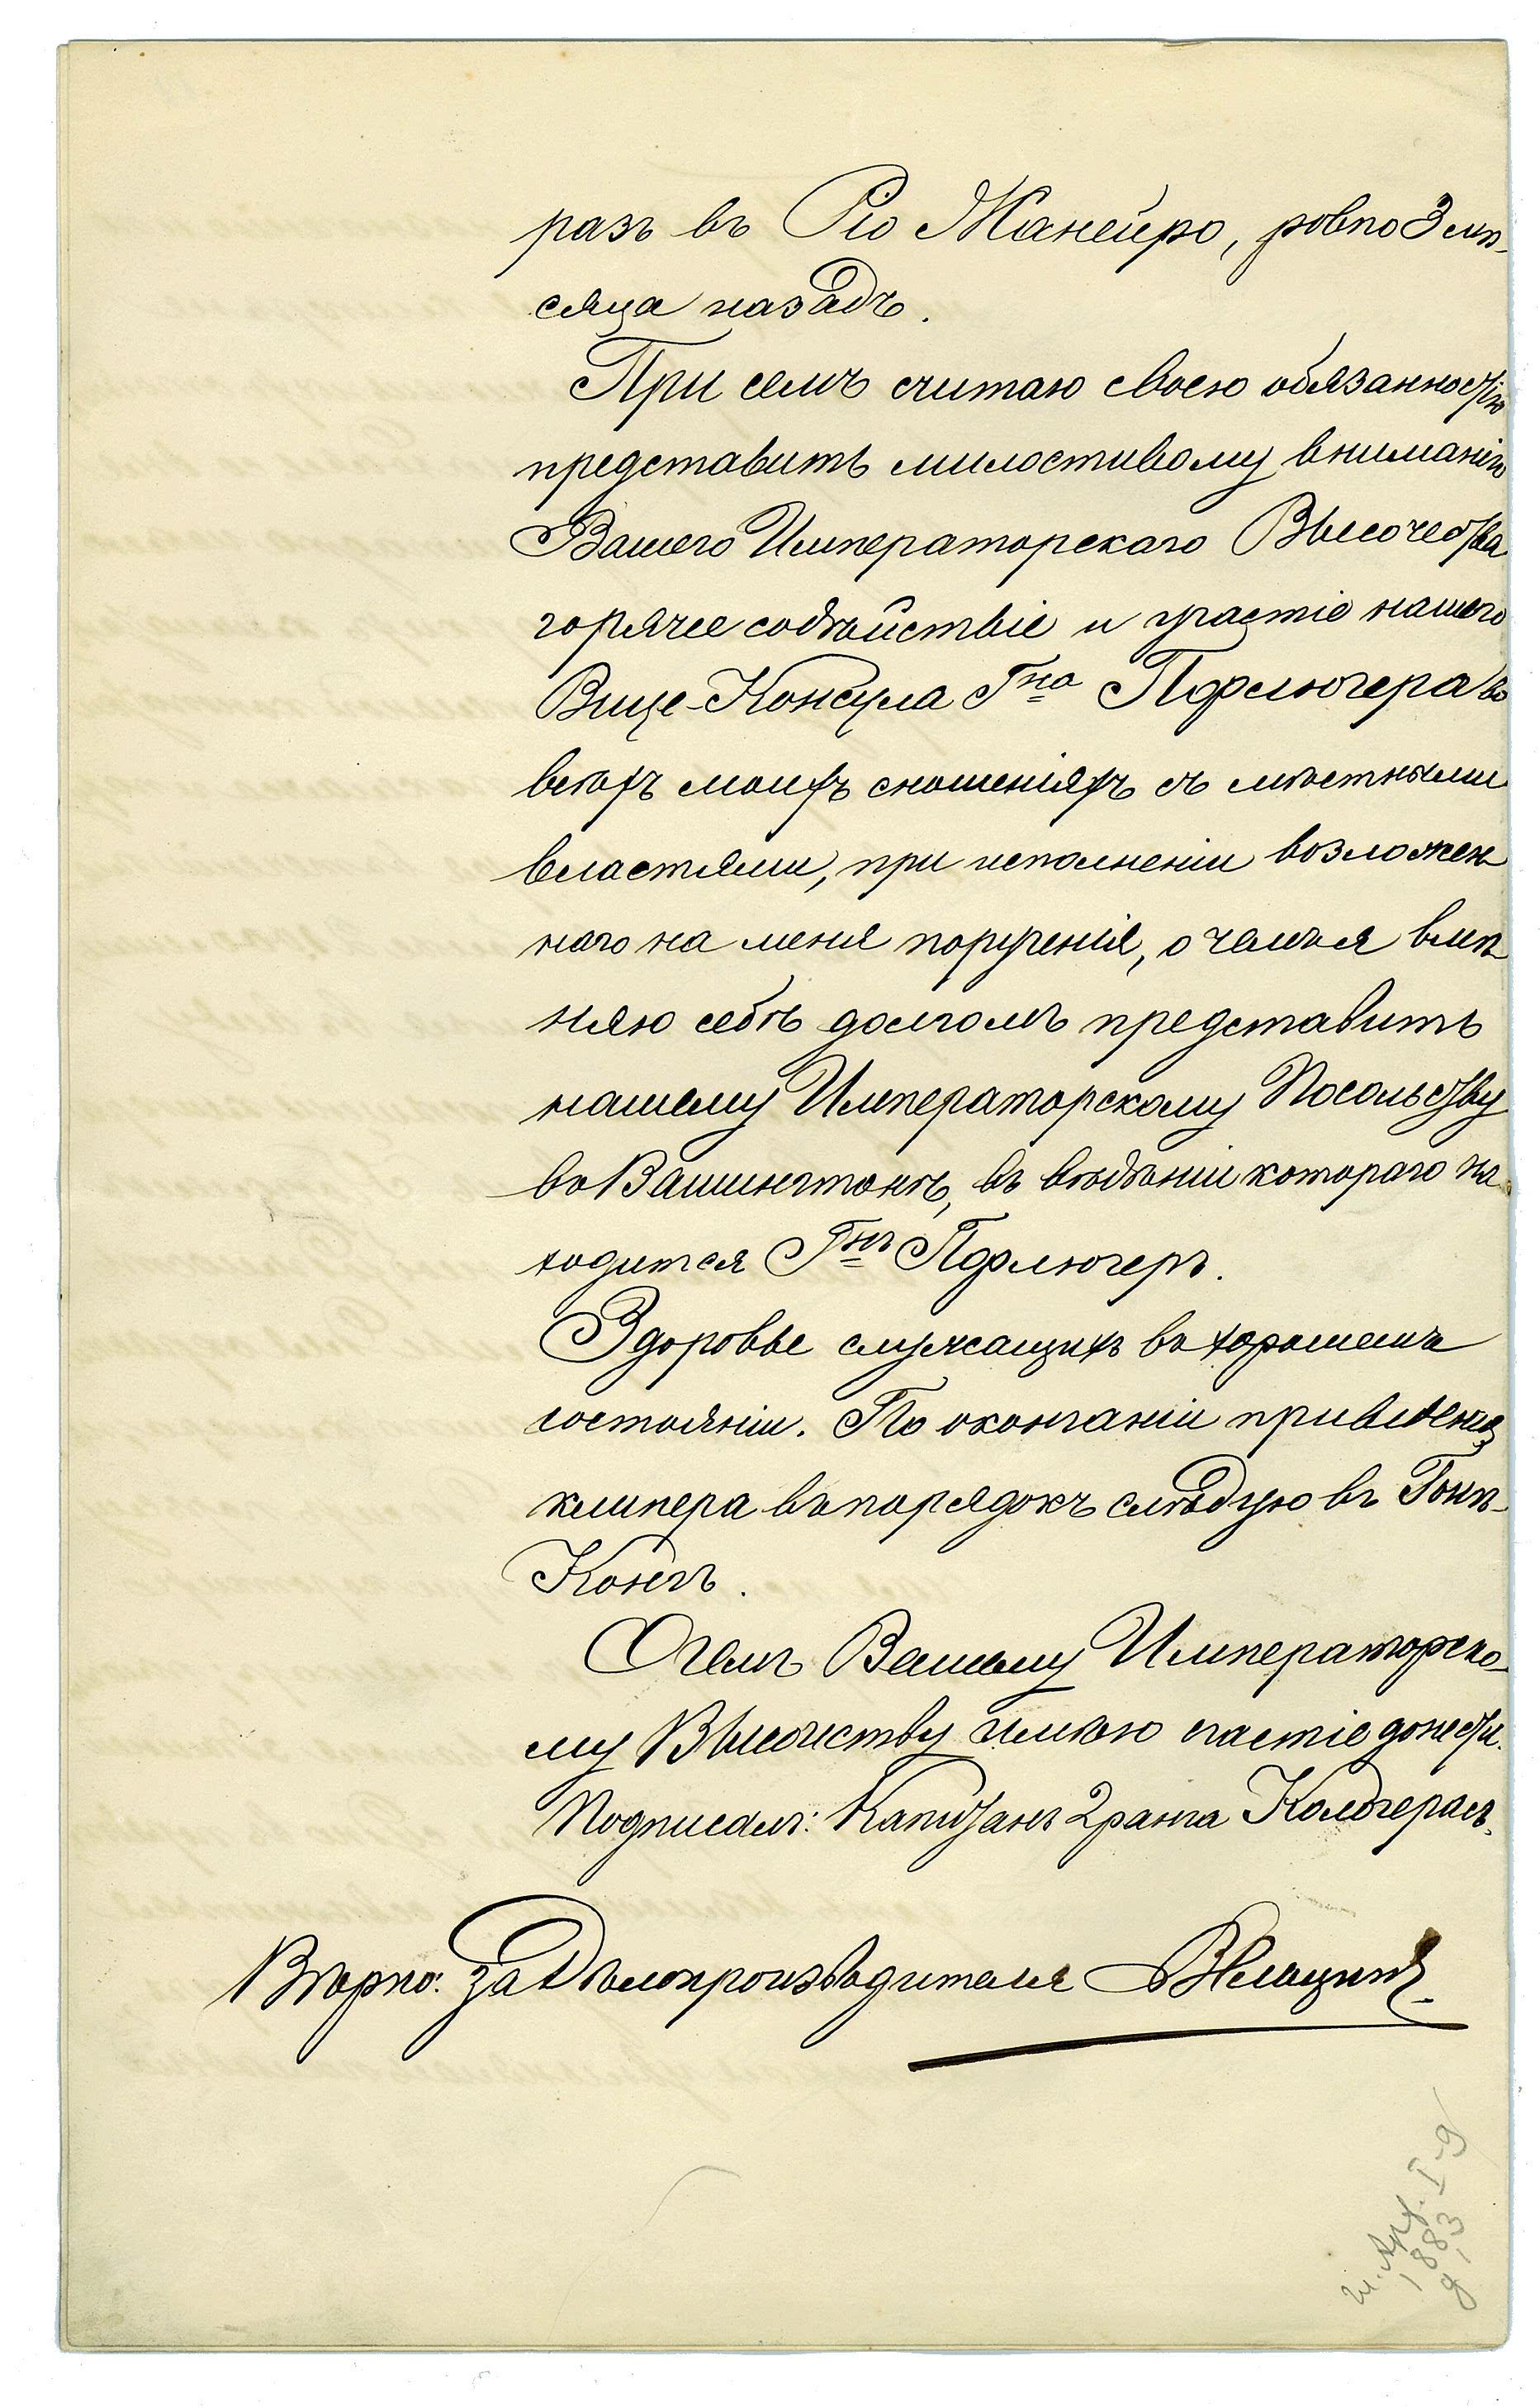 разъ въ Рiо Жанейро, ровно 3 мѣ-
сяца назадъ.
При семъ считаю своею обязанностiю
представить милостивому вниманiю
Вашего Императорскаго Высочества
горячее содѣйствiе и участiе нашего
Вице-Консула Гна Пфлюгера во
всѣхъ моихъ сношенiяхъ съ мѣстными
властями, при исполненiи возложен
наго на меня порученiя, о чемъ я вмѣ
няю себѣ долгомъ представить
нашему Императорскому Посольству
въ Вашингтонѣ, въ вѣдѣнiи котораго на
ходится Гнъ Пфлюгеръ.
Здоровье служащихъ въ хорошемъ
состоянiи. По окончанiи приведенiя
клипера въ порядокъ слѣдую въ Гонъ-
Конгъ.
О чемъ Вашему Императорско-
му Высочеству имѣю счастiе донести.
Подписалъ: Капитанъ 2 ранга Кологерасъ.
Вѣрно: за Дѣлопроизводителя
1883